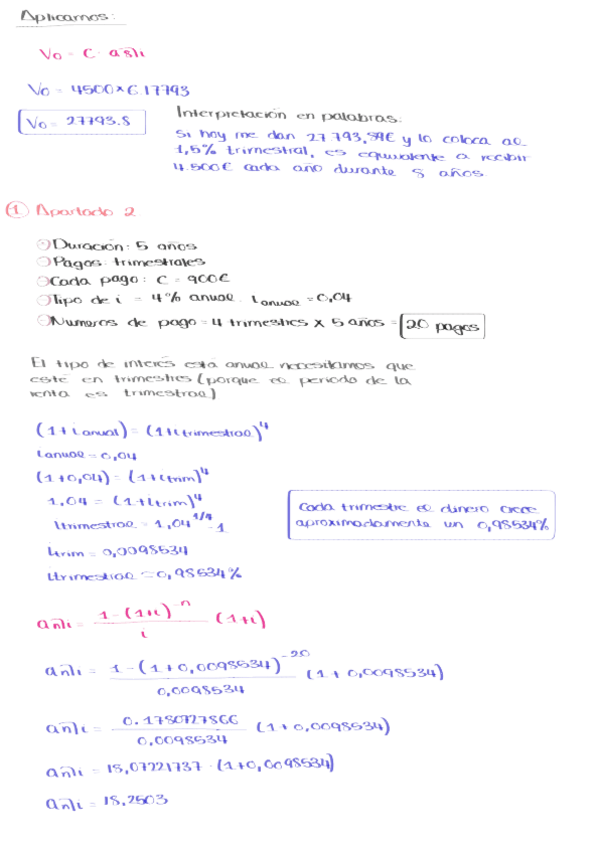 Aplicamos:
Vo = C · än̅|i
Vo = 4500 × 6.17793
Vo = 27793.8
Interpretación en palabras:
Si hoy me dan 27793,84€ y lo coloca al
1,5% trimestral, es equivalente a recibir
4.500€ cada año durante 5 años.
① Apartado 2
Duración: 5 años
Pagos: trimestrales
Cada pago: C = 900€
Tipo de i = 4% anual. ianual = 0,04
Numeros de pago = 4 trimestres × 5 años = 20 pagos
El tipo de interés está anual necesitamos que
esté en trimestres (porque el periodo de la
renta es trimestral)
(1+ianual) = (1+itrimestral)⁴
ianual = 0,04
(1+0,04) = (1+itrim)⁴
1,04 = (1+itrim)⁴
itrimestral = 1,04^1/4 - 1
itrim = 0,0098534
itrimestral = 0,98534%
Cada trimestre el dinero crece
aproximadamente un 0,98534%
än̅|i = 1-(1+i)^-n / i (1+i)
än̅|i = 1-(1+0,0098534)^-20 / 0,0098534 (1+0,0098534)
än̅|i = 0.1780727866 / 0,0098534 (1+0,0098534)
än̅|i = 18,07221737 · (1+0,0098534)
än̅|i = 18,2503